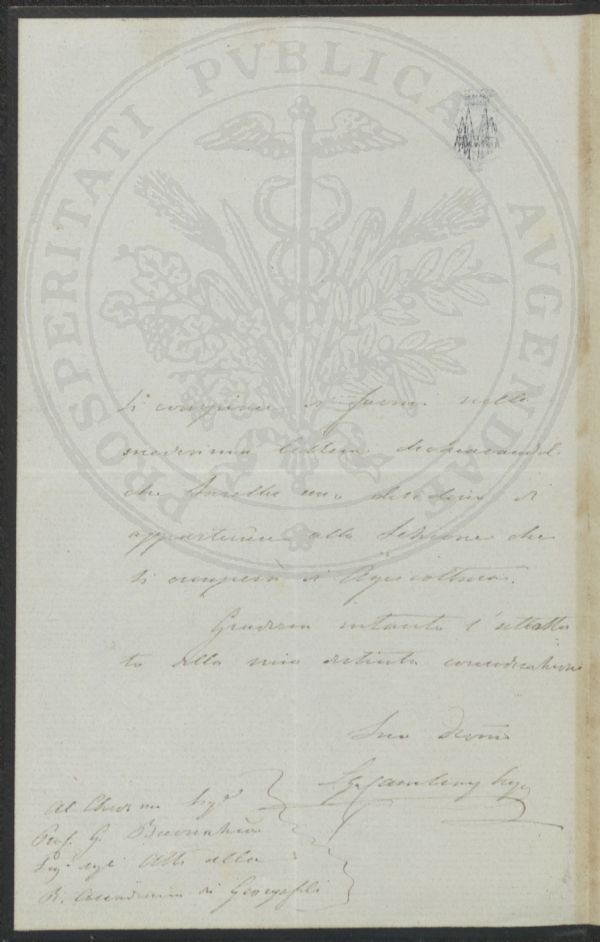 PROSPERITATI PVBLICAE AVGENDAE
si compiace di farmi nella
medesima lettera dichiarandole
che sarebbe mio desiderio di
appartenere alla Sezione che
si occuperà di Agricoltura.
Gradisca intanto l'attesta
to della mia distinta considerazione
Suo Devmo
Al Chiarmo Sigr
Prof. G.
Segr. degli Atti della
R. Accademia di Georgofili